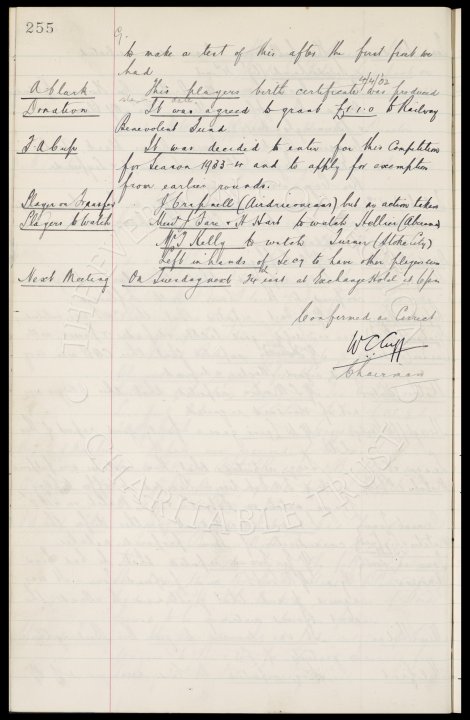 255
to make a test of this after the first frost we
had
A Clark This players birth certificate was produced
4/4/02
Donation It was agreed to grant £1.1.0 to Railway
Benevolent Fund
F A Cup It was decided to enter for this Competition
for Season 1933-4 and to apply for exemption
from earlier rounds.
Player on Transfer (Airdrieonians) but no action taken
Players to Watch Hart to watch
Mr J Kelly to watch Turner (Stoke City)
Left in hands of Secy to have other players seen
Next Meeting On Tuesday next inst at Exchange Hotel at 6pm
Confirmed as Correct
W C Cuff
Chairman
CHARITABLE TRUST